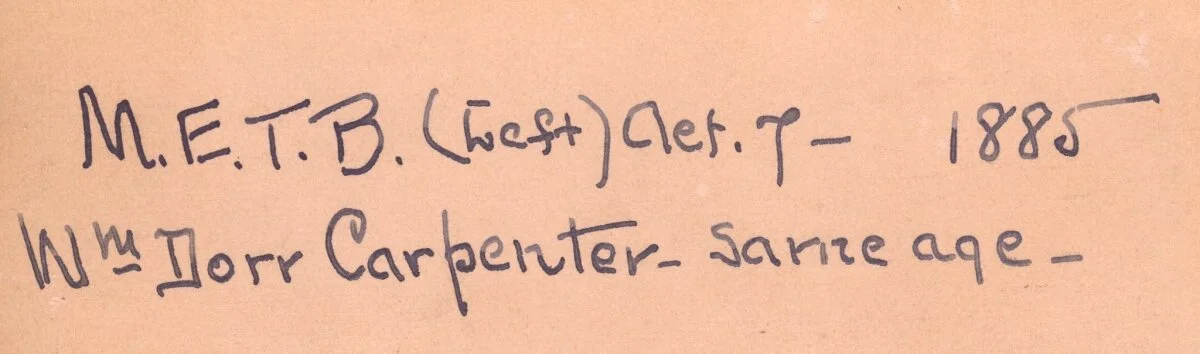 M.E.T.B. (Left) Aet. 7 - 1885
Wm Dorr Carpenter - same age -